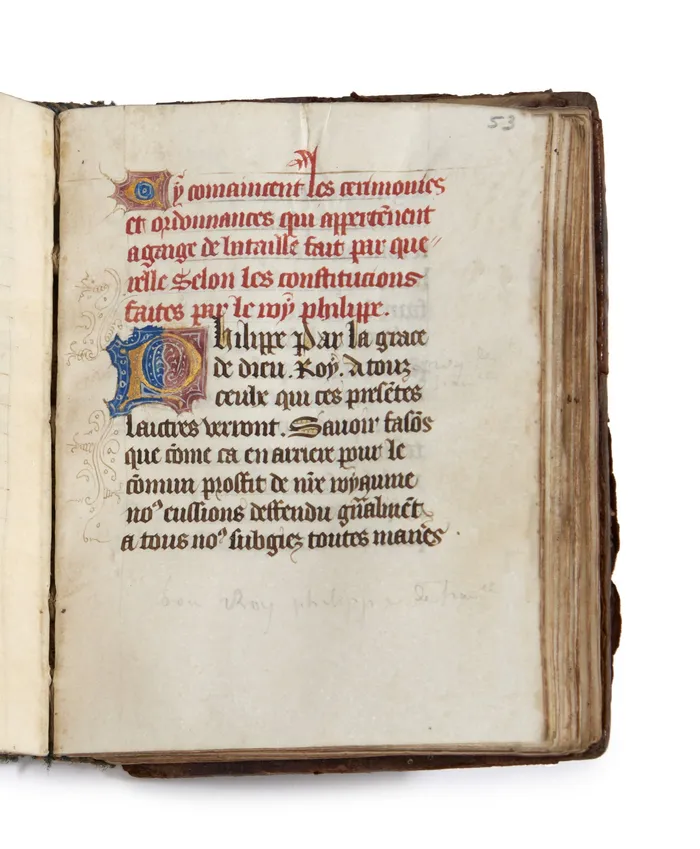 53
Cy comaincent les cerimonies
et ordonnances qui appertēnent
a gaige de bataille fait par que〃
relle Selon les constitucions
faites par le roy philippe.
Philippe Par la grace
de dieu. Roy. A touz
ceulx qui ces presētes
lauctres verront. Savoir fasōs
que cōme ca en arriere pour le
cōmun proffit de nr̄e royaume
noꝰ eussions deffendu gn̄almēt
a tous noꝰ subgiez toutes manieˉs
Roy philippe de